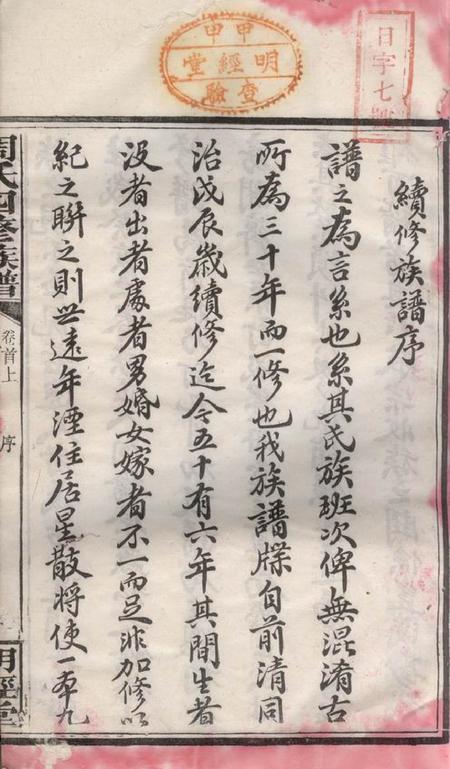 日字七號
甲申
明經堂
查驗
續修族譜序
譜之為言系也系其氏族班次俾無混淆古
所為三十年而一修也我族譜牒自前清同
治戊辰歲續修迄今五十有六年其間生者
沒者出者處者男婚女嫁者不一而足非加修以
紀之聯之則世遠年湮住居星散將使一本九
周氏四修族譜
卷首上
序
明經堂